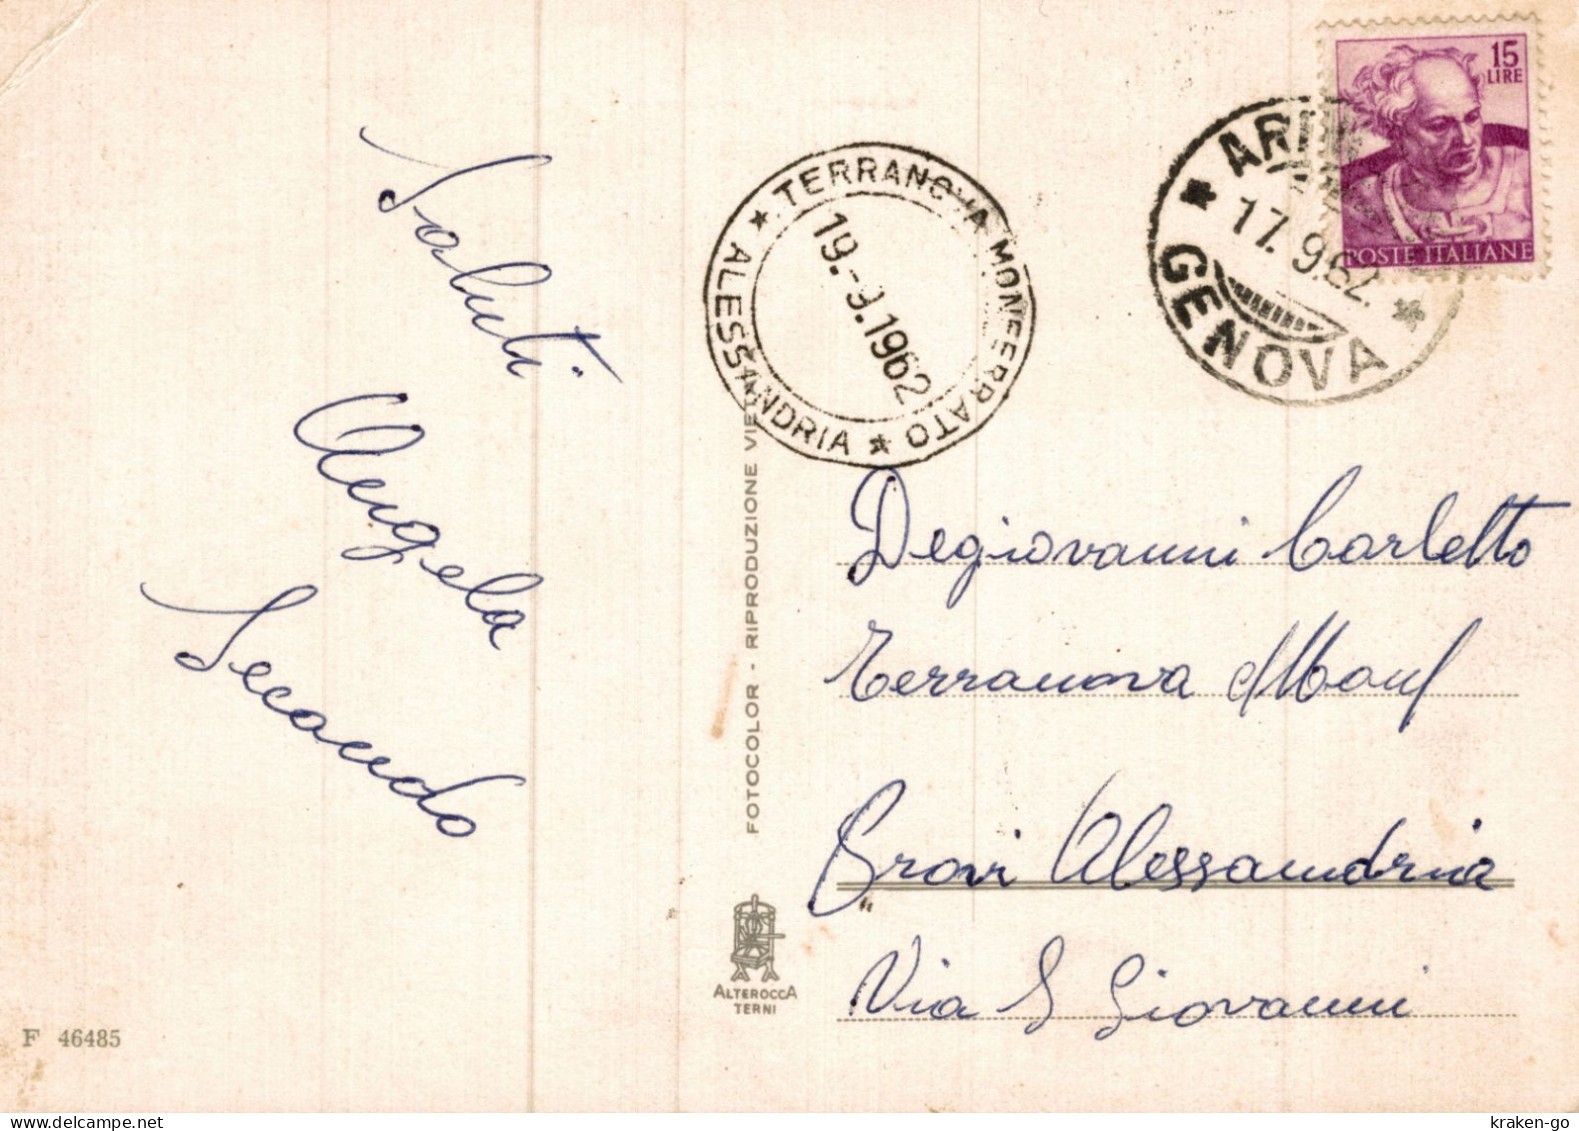 Saluti
Angela
Secondo
F 46485
FOTOCOLOR - RIPRODUZIONE
ALTEROCCA
TERNI
* TERRANOVA MONFERRATO *
ALESSANDRIA
19.-9.1962
17.9.62.
GENOVA
15
LIRE
POSTE ITALIANE
Degiovanni Carletto
Terranova Monf
Provi Alessandria
Via S Giovanni
delcampe.net
kraken-go